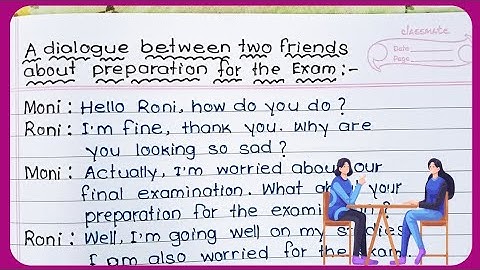 classmate
Date
Page
A dialogue between two friends
about preparation for the Exam:-
Moni : Hello Roni, how do you do ?
Roni : I'm fine, thank you. Why are
you looking so sad ?
Moni : Actually, I'm worried about our
final examination. What your
preparation for the
Roni : Well, I'm going well on my studies
I am also worried for the Exam.